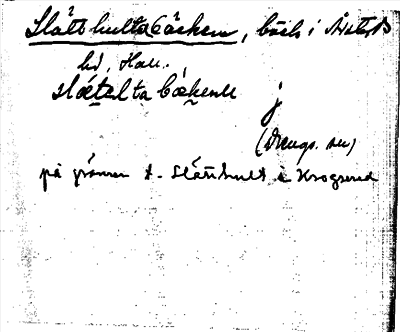 Slätthultabäcken, bäck i Årstads
hd, Hall.
slǽtelta bǽkenn
j
på gränsen t. Slätthult i Krogsered